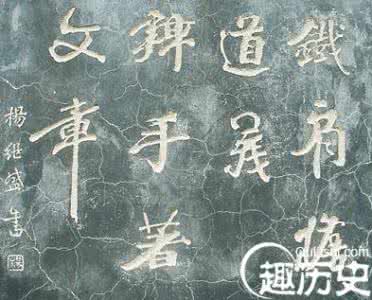 鐵肩擔
道義
辣手著
文章
楊継盛書
趣历史